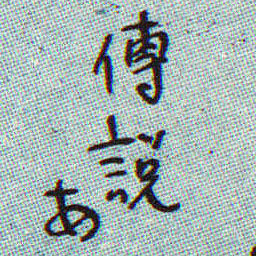 傳説
あ